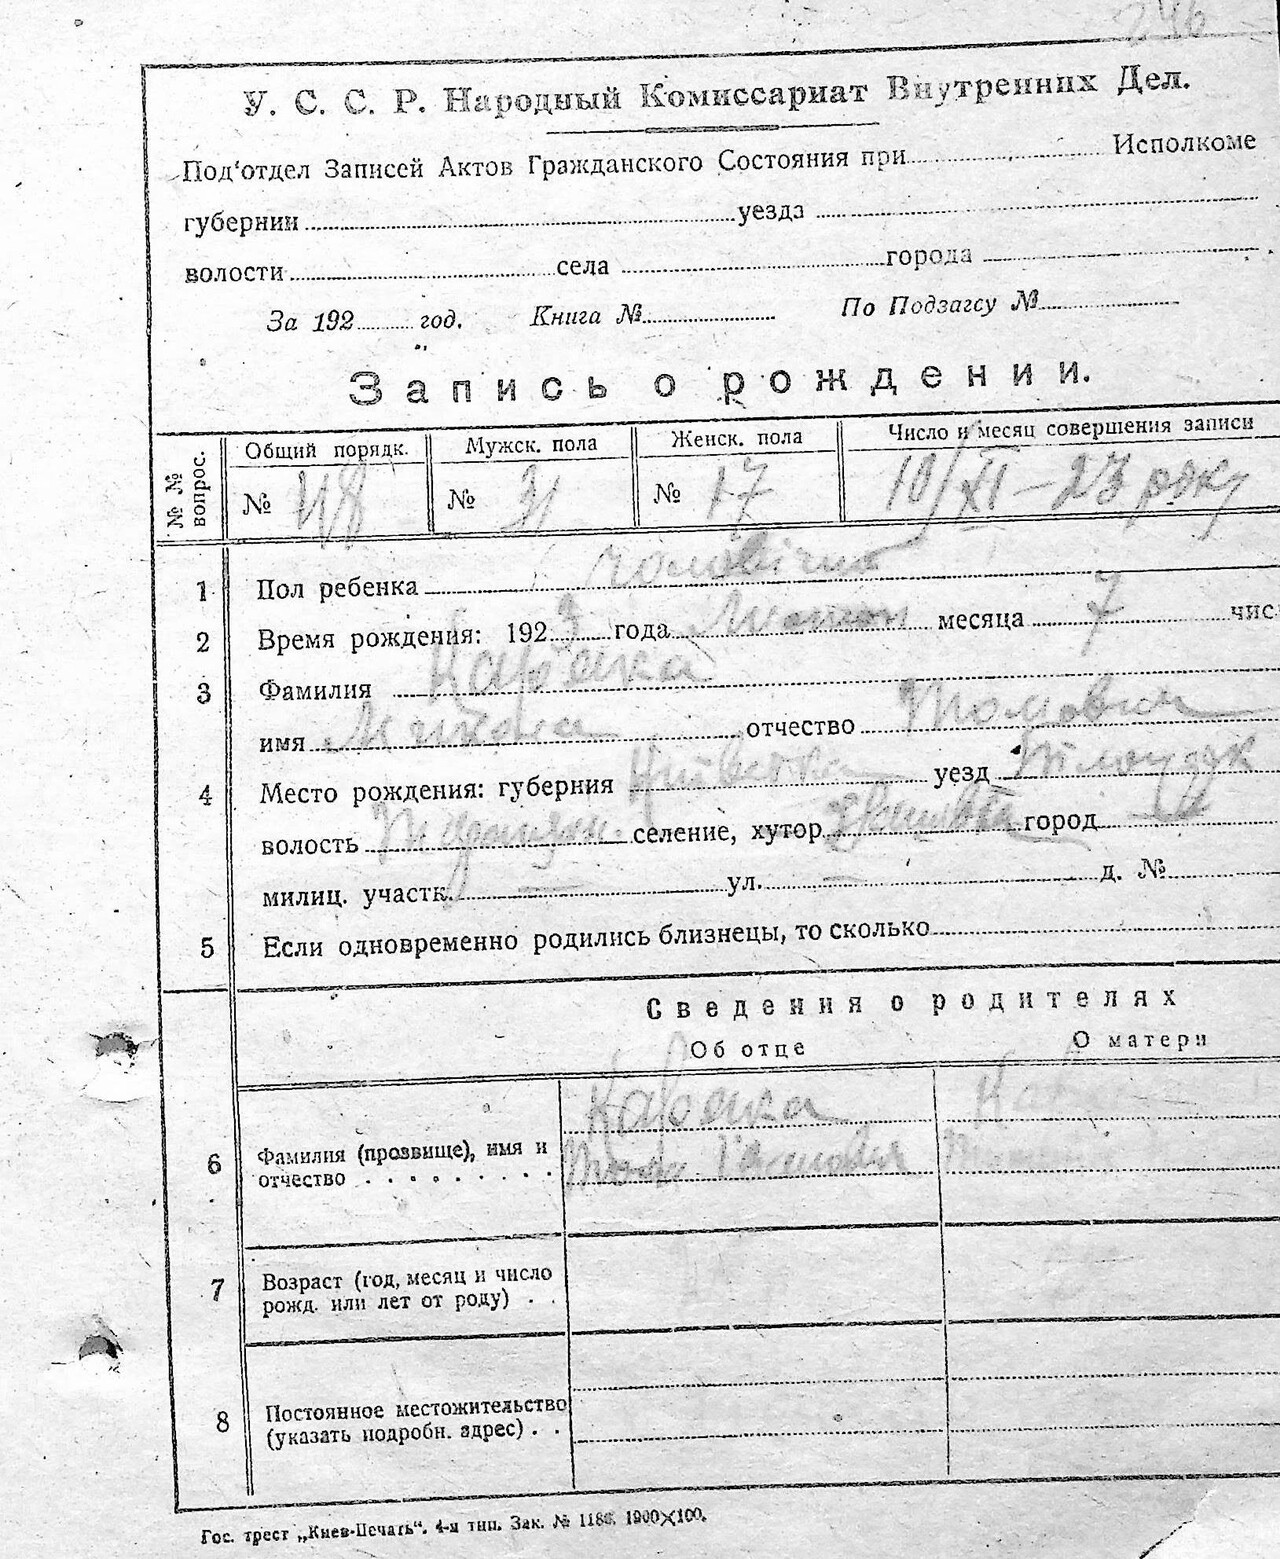 246
У. С. С. Р. Народный Комиссариат Внутренних Дел.
Под'отдел Записей Актов Гражданского Состояния при Исполкоме
губернии уезда
волости села города
За 192 год. Книга № По Подзагсу №
Запись о рождении.
№ № вопрос.
Общий порядк. Мужск. пола Женск. пола Число и месяц совершения записи
№ 48 № 31 № 17 10/XI – 23 року
1 Пол ребенка чоловічий
2 Время рождения: 1923 года месяца 7 числ
3 Фамилия
имя Микола отчество Томович
4 Место рождения: губерния Київська уезд
волость селение, хутор город
милиц. участк. — ул. — д. №
5 Если одновременно родились близнецы, то сколько
Сведения о родителях
Об отце О матери
6 Фамилия (прозвище), имя и
отчество
7 Возраст (год, месяц и число
рожд. или лет от роду)
8 Постоянное местожительство
(указать подробн. адрес)
Гос. трест „Киев-Печать“. 4-я тип. Зак. № 1186. 1900×100.